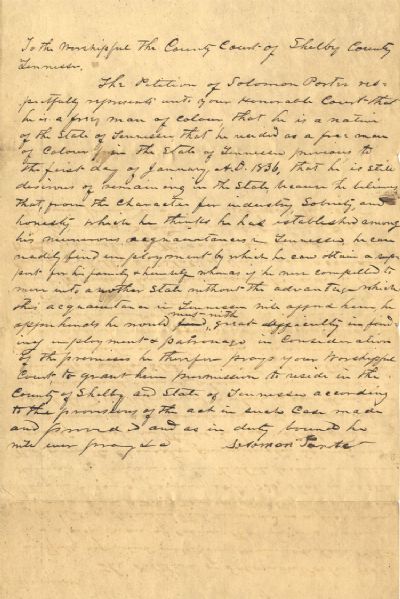 To the Worshipful the County Court of Shelby County
Tennessee.
The Petition of Solomon Porter res-
pectfully represents unto your Honorable Court that
he is a free man of colour, that he is a native
of the State of Tennessee that he resided as a free man
of Colour in the State of Tennessee previous to
the first day of January A.D. 1836, that he is still
desirous of remaining in the State because he believes
that, from the Character for industry Sobriety and
honesty which he thinks he has established among
his numerous acquaintances in Tennessee, he can
readily find employment by which he can obtain a sup-
port for his family & himself whereas if he were compelled to
move into another State without the advantage which
his acquaintance in Tennessee will afford him, he
apprehends he would meet with great difficulty in find
ing employment & patronage, in Consideration
of the premises he therefore prays your Worshipful
Court, to grant him permission to reside in the
County of Shelby and State of Tennessee according
to the provisions of the act in such Case made
and provided and as in duty bound he
will ever pray &c Solomon Porter